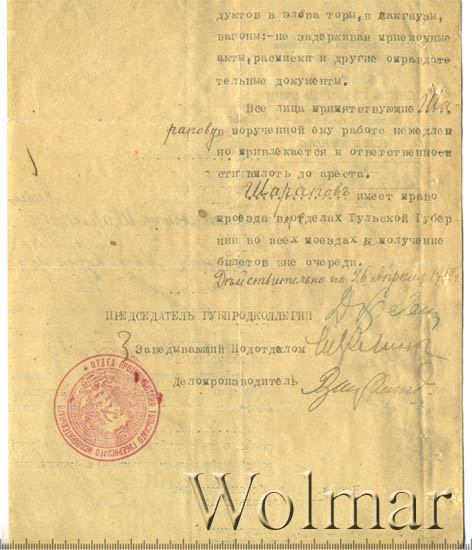 дуктов в элева торы, в пакгаузы,
вагоны:-не задерживая приемочные
акты, расписки и другие оправдате
тельные документы.
Все лица припятствующие Ша
рапову в порученной ему работе немедлен
но привлекается к ответственнос
сти вплоть до ареста.
Шараповъ имеет право
проезда в пределах Тульской Губер
нии во всех поездах и получение
билетов вне очереди.
Действительно по 26 Апреля
ПРЕДСЕДАТЕЛЬ ГУБПРОДКОЛЛЕГИИ
З Заведывающий Подотделом
Делопроизводитель
Wolmar